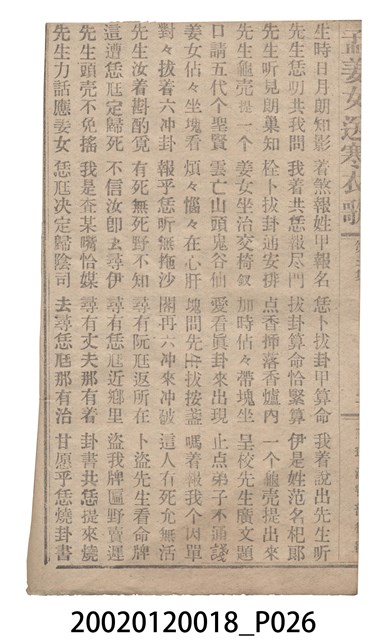 孟姜女送寒衣歌
生時日月朗知影 着煞報姓甲報名 恁卜拔卦甲算命 我着說出先生听
先生恁叨共我問 我着共恁報尽門 拔卦算命恰緊算 伊是姓范名杞郎
先生听見朗巢知 栓卜拔卦逓安排 点香挿落香爐內 一个龜壳提出來
先生龜壳提一个 姜女坐治交椅 加時佔々帶塊坐 呈校先生廣文題
口請五代个聖賢 雲亡山頭鬼谷仙 愛看眞卦來出現 止点弟子不通諓
姜女佔々坐塊看 煩々惱々在心肝 塊問先生拔按盞 嗎着報我个因單
對々拔着六冲卦 報乎恁听無拖沙 閣再六冲來冲破 這人有死允無活
先生汝着斟酌覓 有死無死野不知 尋有阮尫返所在 卜盜先生看命牌
這遭恁尫定歸死 不信汝卽去尋伊 尋有恁尫近鄉里 盜我牌匾野賣遲
先生頭壳不免搖 我是查某嘴恰媒 尋有丈夫那有着 卦書共恁提來燒
先生力話應姜女 恁尫决定歸陰司 去尋恁尫那有治 甘愿乎恁燒卦書
20020120018_P026